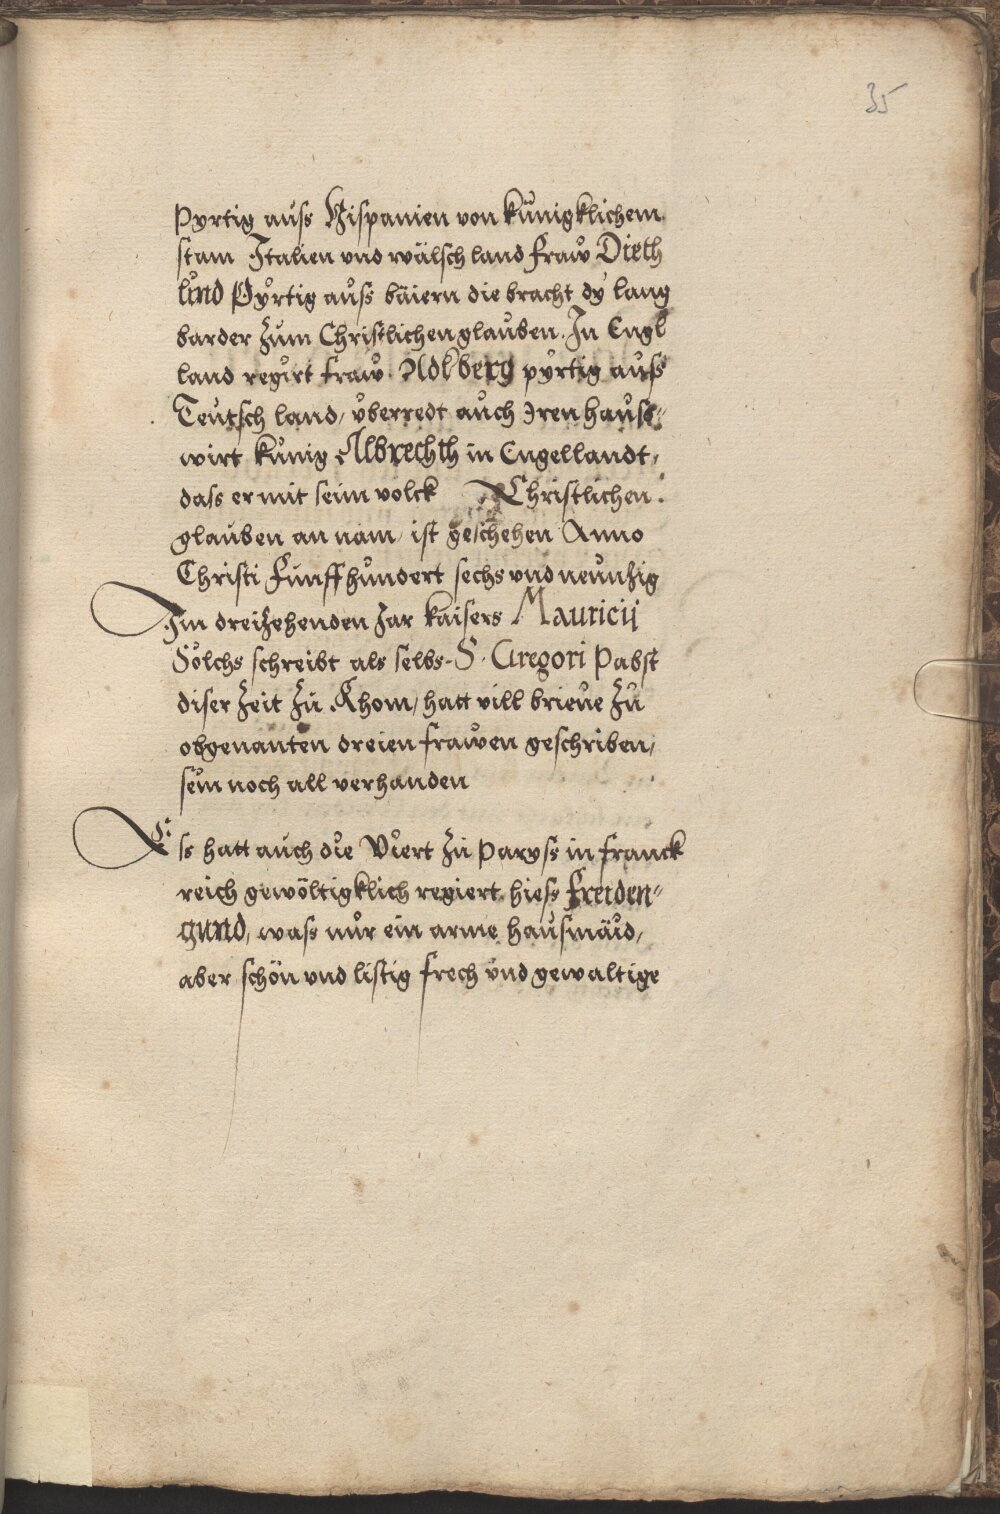 35
Pyrtig auss Hispanien von künigklichem
stam Italien vnd wälsch land fraw Dieth
lind Pyrtig auss bäiern die bracht dy lang
barder zum Christlichen glauben. In Engl
land regirt fraw Adlberg pyrtig auss
Teutsch land, vberredt auch Iren hauss-
wirt künig Albrechth in Engellandt,
dass er mit seim volck Christlichen
glauben an nam, ist geschehen Anno
Christi Funff hundert sechs vnd neunzig
Im dreizehenden Jar kaisers Mauricij
Sölchs schreibt als selbs S. Gregori Pabst
diser zeit zu Rhom, hatt vill brieue zu
obgenanten dreien frawen geschriben,
sein noch all verhanden
Es hatt auch die Viert zu Paryss in franck
reich gewöltigklich regiert, hiess Freiden-
gund, wass nur ein arme hausmäid,
aber schön vnd listig frech vnd gewaltige